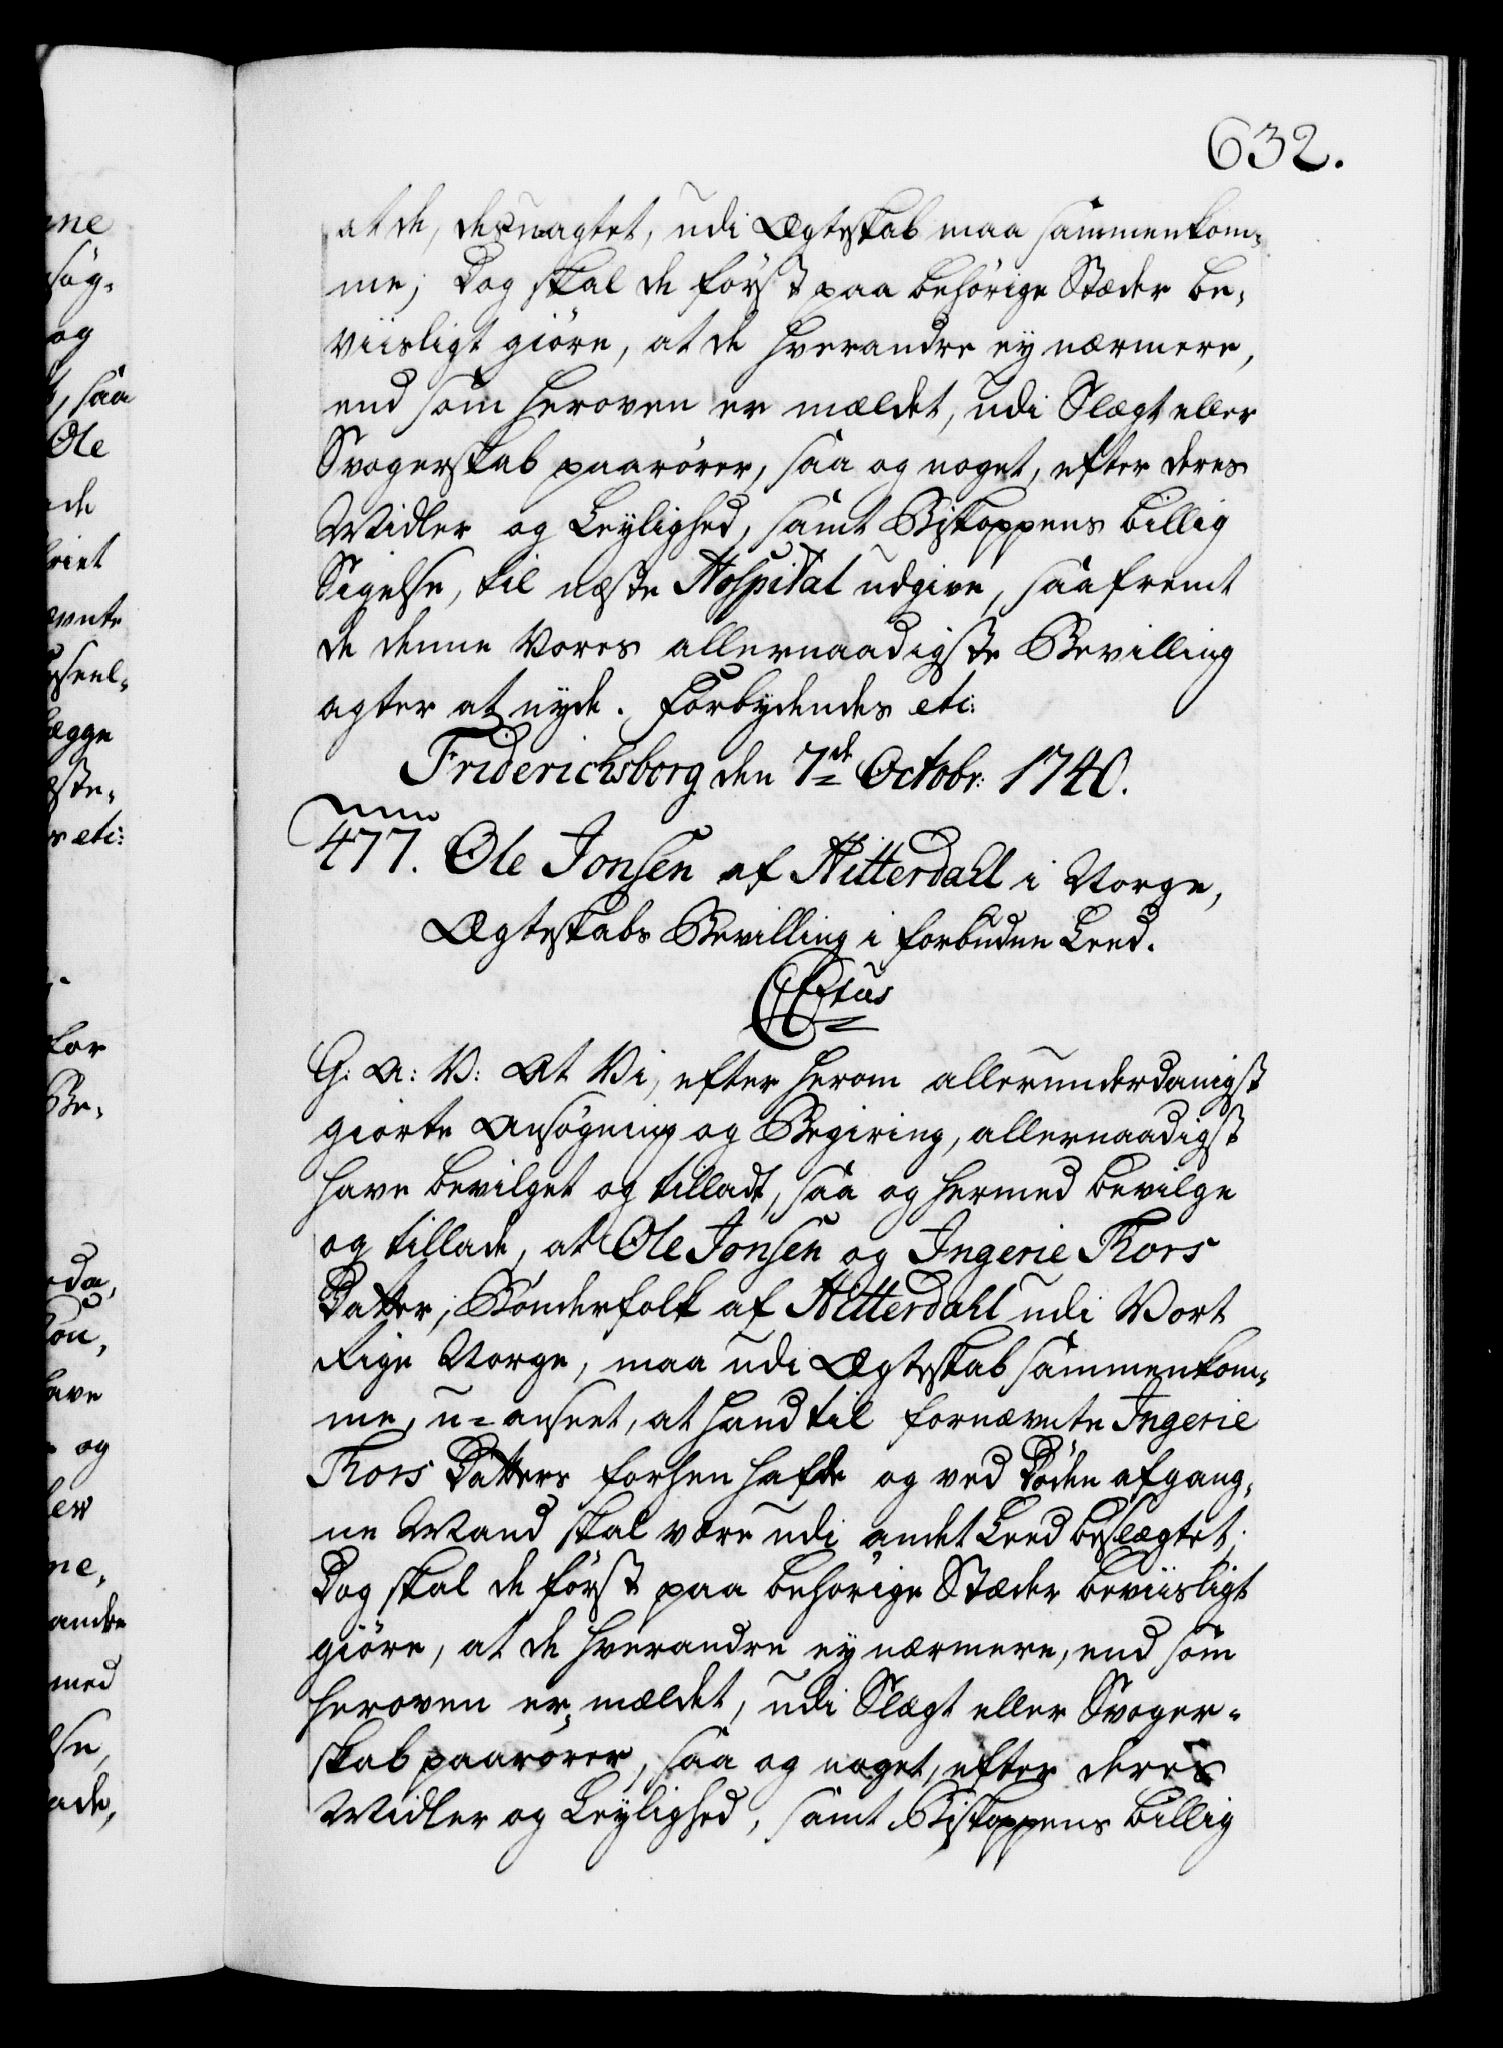 632.
at de, desuagtet, udi Ægteskab maa sammenkom-
me; Dog skal de först paa behörige Stæder be-
viisligt giöre, at de hverandre ey nærmere,
end som heroven er mældet, udi Slægt eller
Svogerskab paarörer, saa og noget, efter deres
Midler og Leylighed, samt Biskoppens billig
Sigelse, til næste Hospital udgive, saafremt
de denne Vores allernaadigste Bevilling
agter at nyde. Forbydendes etc:
Friderichsborg den 7de Octobr: 1740.
477. Ole Jonsen af Hitterdahl i Norge,
Ægteskabs Bevilling i forbuden Leed.
CCtus
G: A: V: At Vi, efter herom allerunderdanigst
giorte Ansögning og Begiering, allernaadigst
have bevilget og tilladt, saa og hermed bevilge
og tillade, at Ole Jonsen og Ingerie Thors
Datter, Bönderfolk af Hitterdahl udi Vort
Rige Norge, maa udi Ægteskab sammenkom-
me, u-anseet, at hand til fornævnte Ingerie
Thors Datters forhen hafde og ved Döden afgang-
ne Mand skal være udi andet Leed beslægtet;
Dog skal de först paa behörige Stæder beviisligt
giöre, at de hverandre ey nærmere, end som
heroven er mældet, udi Slægt eller Svoger-
skab paarörer, saa og noget, efter deres
Midler og Leylighed, samt Biskoppens billig